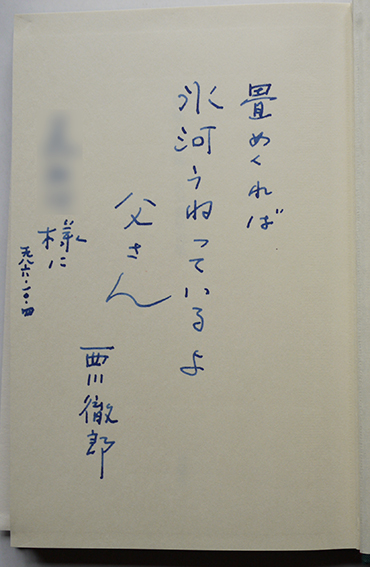 畳めくれば
氷河うねっているよ
父さん
西川徹郎
様に
一九八六・一〇・四